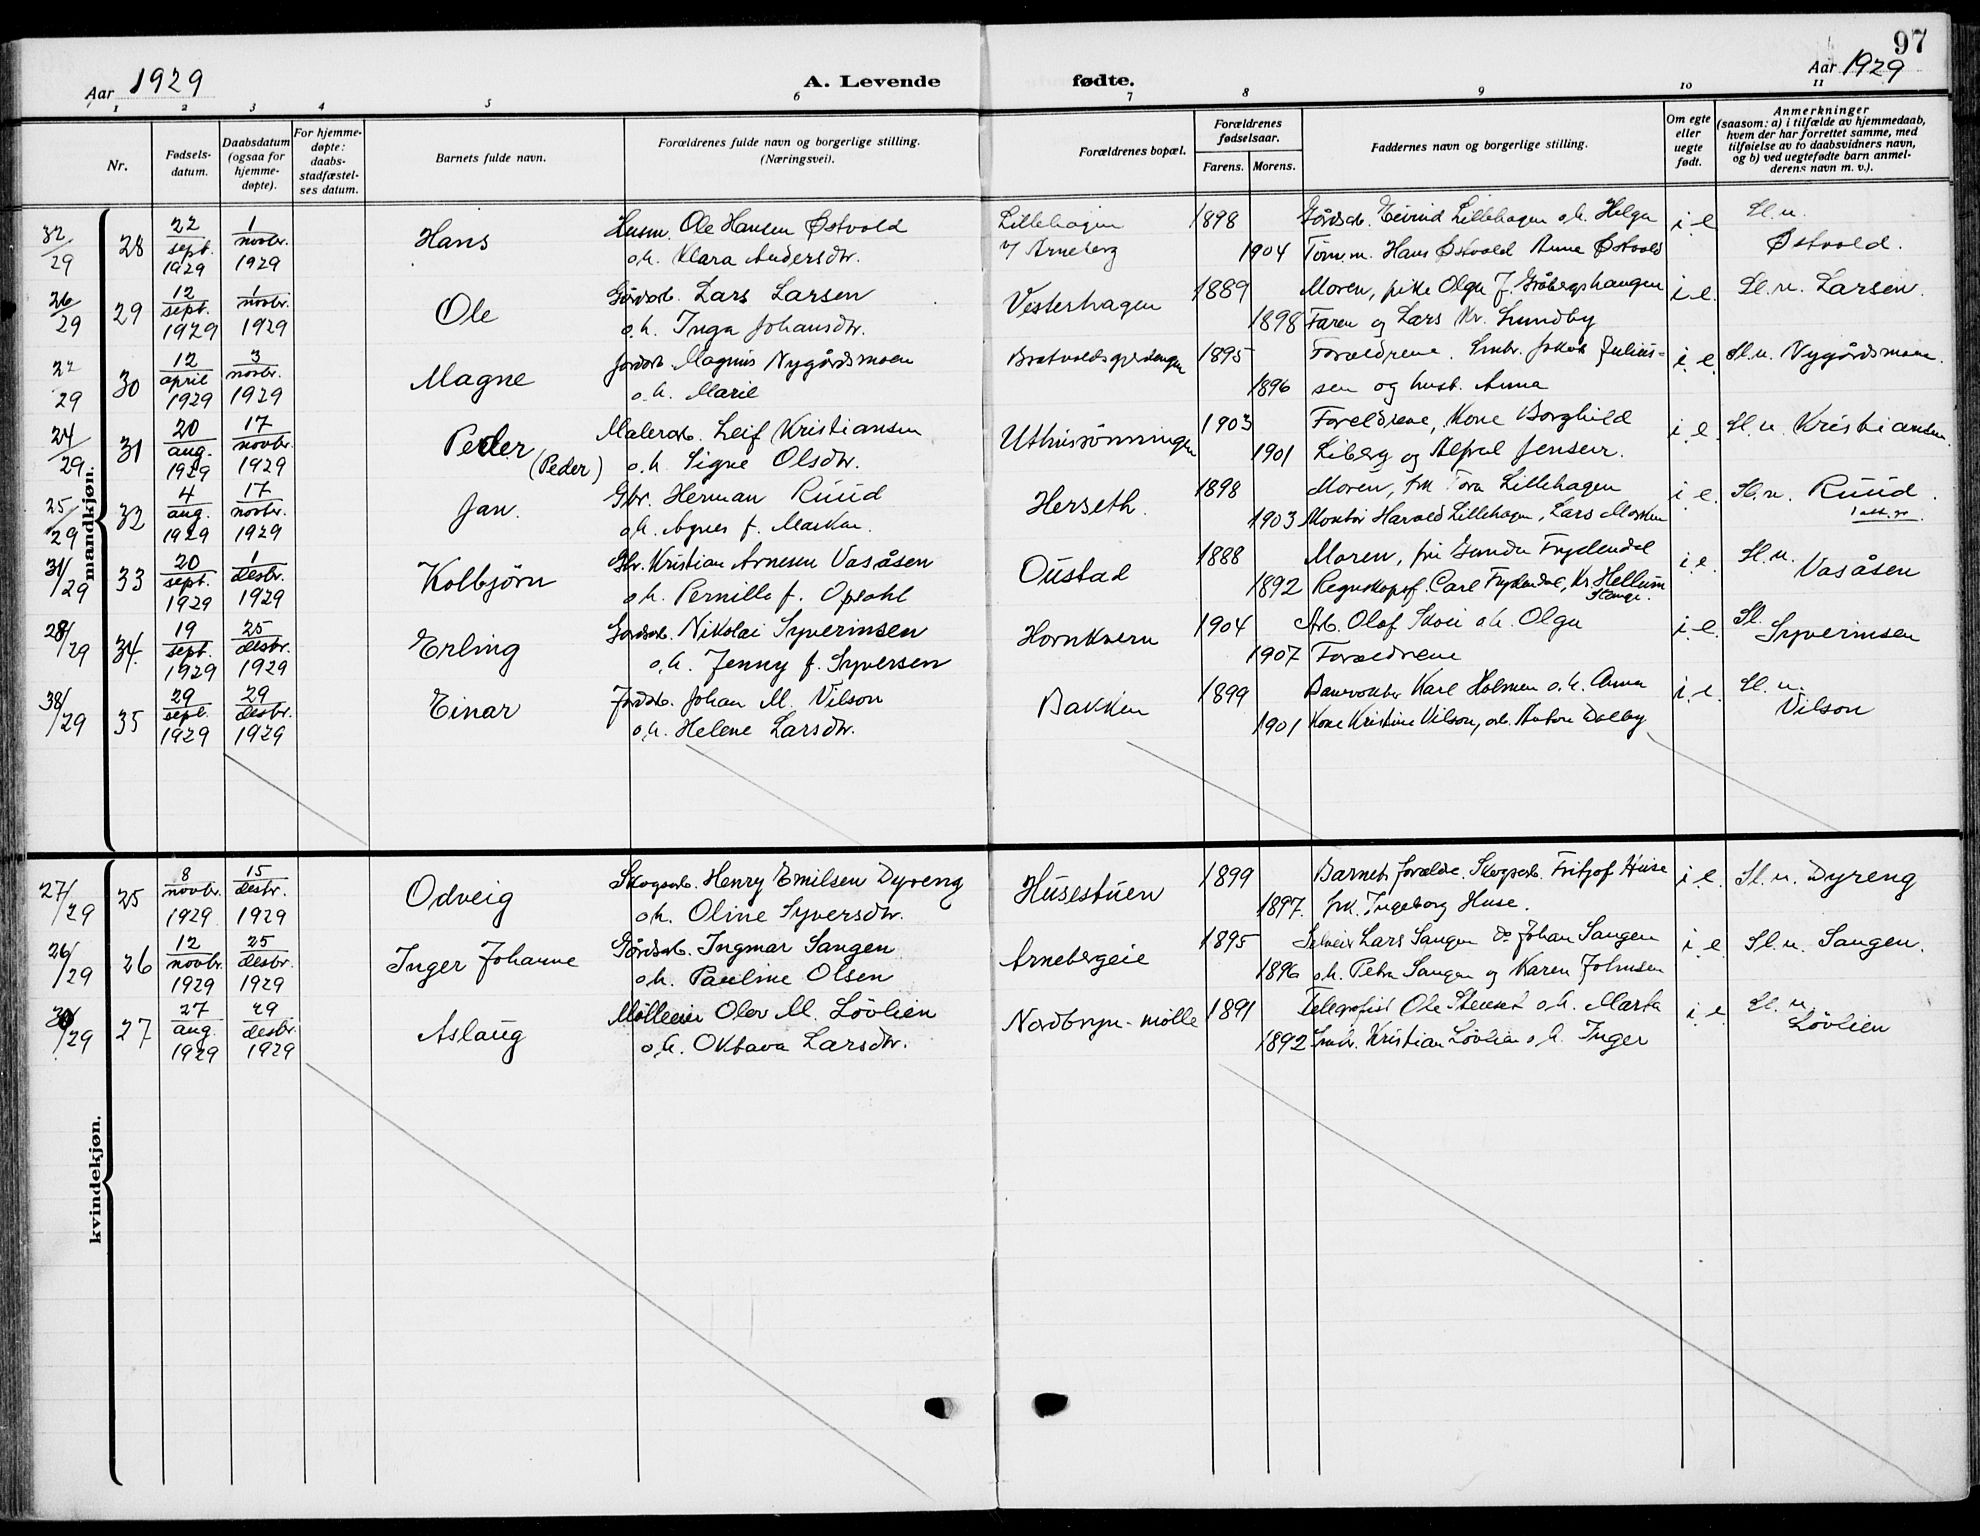 97
Aar 1929
A. Levende fødte.
Aar 1929
1 2 3 4 5 6 7 8 9 10 11
Nr.
Fødsels-
datum.
Daabsdatum
(ogsaa for
hjemme-
døpte).
For hjemme-
døpte:
daabs-
stadfæstel-
ses datum.
Barnets fulde navn.
Forældrenes fulde navn og borgerlige stilling.
(Næringsvei).
Forældrenes bopæl.
Forældrenes
fødselsaar.
Farens. Morens.
Faddernes navn og borgerlige stilling.
Om egte
eller
uegte
født.
Anmerkninger
(saasom: a) i tilfælde av hjemmedaab,
hvem der har forrettet samme, med
tilføielse av to daabsvidners navn,
og b) ved uegtefødte barn anmel-
derens navn m. v.).
mandkjøn.
32/29 28 22 sept. 1929 1 novbr. 1929 Hans
Husm. Ole Hansen Østvold
o.h. Klara Andersdtr.
Lillehagen
v/ Arneberg
1898 1904
Gårdsb. Eivind Lillehagen o.h. Helga
Tømm. Hans Østvold Anna Østvold
i.e. Sl.u. Østvold.
26/29 29 12 sept. 1929 1 novbr. 1929 Ole
Gårdsb. Lars Larsen
o.h. Inga Johansdtr.
Vesterhagen
1889 1898
Moren, pike Olga J. Gråbergshaugen
Faren og Lars Kr. Lundby
i.e. Sl.u. Larsen.
22/29 30 12 april 1929 3 novbr. 1929 Magne
Jordsb. Magnus Nygårdsmoen
o.h. Marie
1895 1896
Foreldrene. Smbr. Jakob Julius-
sen og hust. Anna
i.e. Sl.u. Nygårdsmoen.
24/29 31 20 aug. 1929 17 novbr. 1929 Peder (Peder)
Malersb. Leif Kristiansen
o.h. Signe Olsdtr.
Uthusrønningen
1903 1901
Foreldrene, Kone Borghild
Liberg og Alfred Jensen.
i.e. Sl.u. Kristiansen.
25/29 32 4 aug. 1929 17 novbr. 1929 Jan.
Gbr. Herman Ruud
o.h. Agnes f.
Herseth.
1898 1903
Moren, frk Tora Lillehagen
Montør Harald Lillehagen, Lars
i.e. Sl.u. Ruud.
31/29 33 20 sept. 1929 1 desbr. 1929 Kolbjørn
Gbr. Kristian Arnesen Vasåsen
o.h. Pernille f. Opsahl
Oustad
1888 1892
Moren, fru Gunda Frydendal
Regnskapsf. Carl Frydendal, Kr. Hellum
Stange.
i.e. Sl.u. Vasåsen
28/29 34. 19 sept. 1929 25 desbr. 1929 Erling
Gårdsb. Nikolai Syverinsen
o.h. Jenny f. Syversen
Hornkvern
1904 1907
Arb. Olaf Skoei o.h. Olga
Foreldrene
i.e. Sl. Syverinsen
38/29 35 29 sept. 1929 29 desbr. 1929 Einar
Jordsb. Johan M. Vilson
o.h. Helene Larsdtr.
Bakken
1899 1901
Banevokter Karl Holmen o.h. Anna
Kone Kristine Vilson, arb. Anton Dalby
i.e. Sl.u. Vilson
kvindekjøn.
27/29 25 8 novbr. 1929 15 desbr. 1929 Odveig
Skogsarb. Henry Emilsen Dyreng
o.h. Oline Syversdtr.
Husestuen
1899 1897.
Barnets forældre. Skogsarb. Fritjof Huse
frk. Ingeborg Huse.
i.e. Sl.u. Dyreng
26/29 26 12 novbr. 1929 25 desbr. 1929 Inger Johanne
Gårdsb. Ingmar Sangen
o.h. Pauline Olsen
Arnebergeie
1895 1896
Selveier Lars Sangen Do Johan Sangen
o.h. Petra Sangen og Karen Johnsen
i.e. Sl.u. Sangen.
30/29 27 27 aug. 1929 29 desbr. 1929 Aslaug
Mølleeier Olav M. Løvlien
o.h. Oktava Larsdtr.
Nordbryn-mølle
1891 1892
Telegrafist Ole Stenset o.h. Marta
Smbr. Kristian Løvlien o.h. Inger
i.e. Sl.u. Løvlien